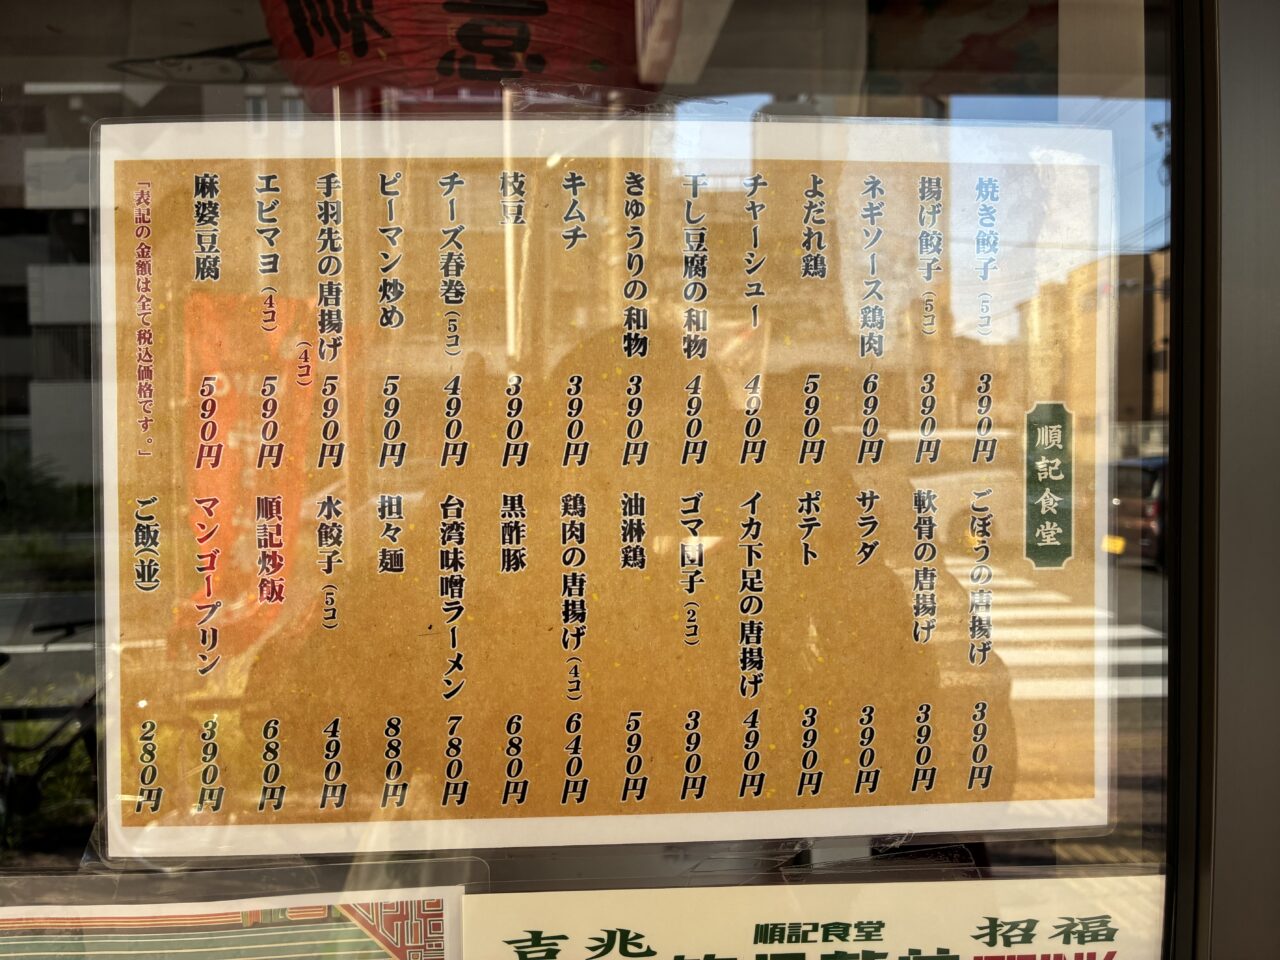 順記食堂
焼き餃子(5コ) 390円
揚げ餃子(5コ) 390円
ネギソース鶏肉 690円
よだれ鶏 590円
チャーシュー 490円
干し豆腐の和物 490円
きゅうりの和物 390円
キムチ 390円
枝豆 390円
チーズ春巻(5コ) 490円
ピーマン炒め 590円
手羽先の唐揚げ(4コ) 590円
エビマヨ(4コ) 590円
麻婆豆腐 590円
「表記の金額は全て税込価格です。」
ごぼうの唐揚げ 390円
軟骨の唐揚げ 390円
サラダ 390円
ポテト 390円
イカ下足の唐揚げ 490円
ゴマ団子(2コ) 390円
油淋鶏 590円
鶏肉の唐揚げ(4コ) 640円
黒酢豚 680円
台湾味噌ラーメン 780円
担々麺 880円
水餃子(5コ) 490円
順記炒飯 680円
マンゴープリン 390円
ご飯(並) 280円
吉兆
順記食堂
招福